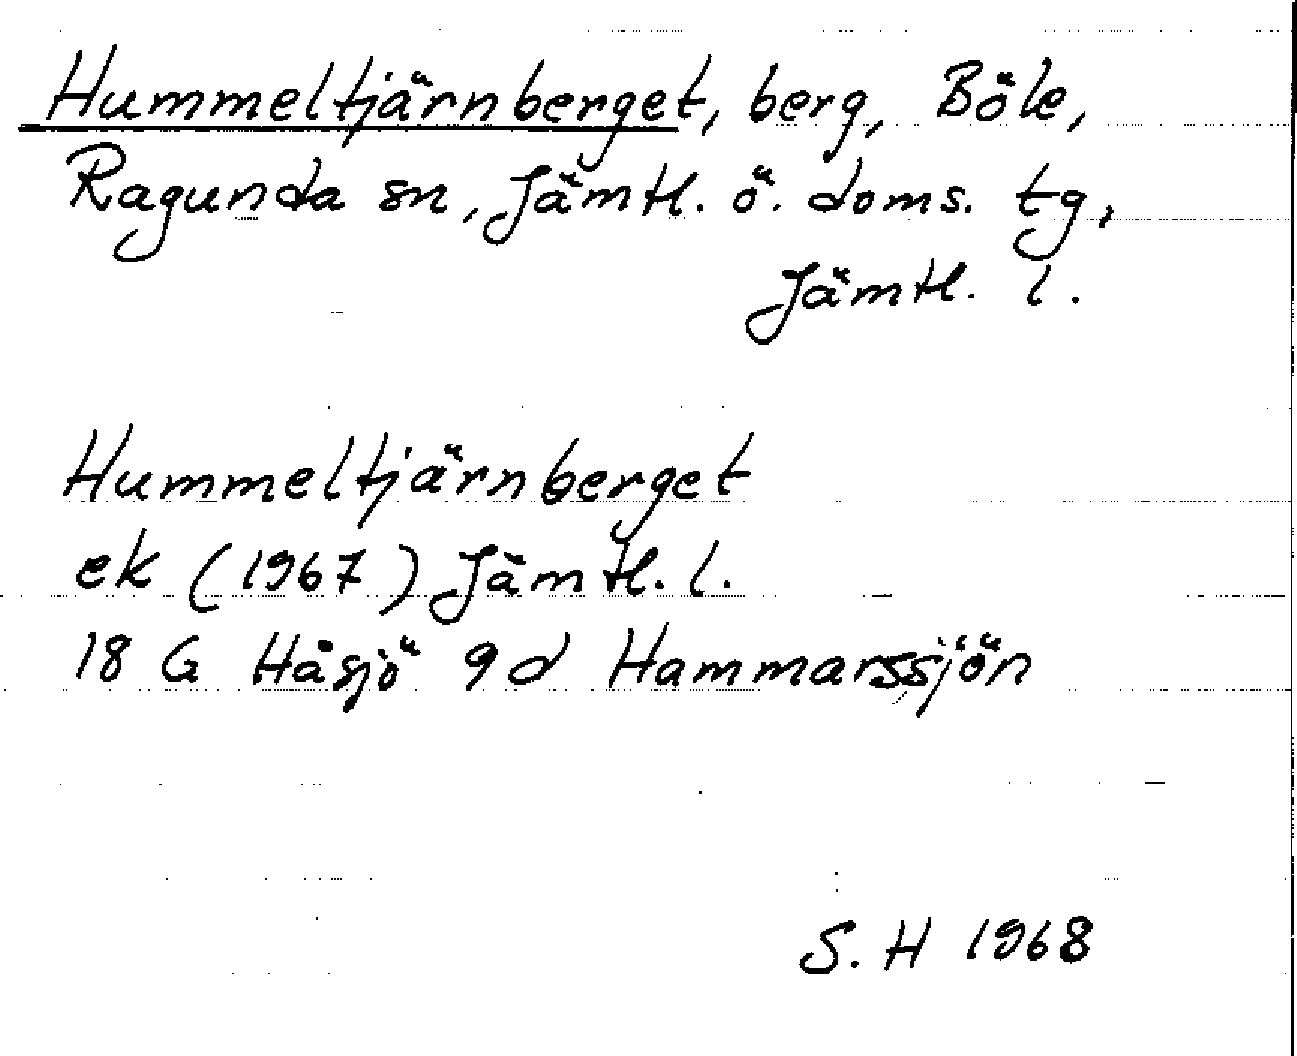 Hummeltjärnberget, berg, Böle,
Ragunda sn, Jämtl. ö. doms. tg,
Jämtl. l.
Hummeltjärnberget
ek (1967) Jämtl. l.
18 G Håsjö 9d Hammarssjön
S. H 1968